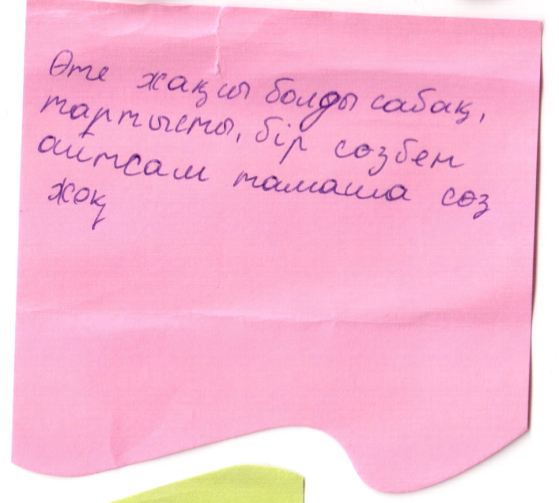 Өте жақсы болды сабақ,
тартысты, бір сөзбен
айтсам тамаша сөз
жоқ